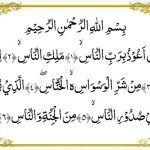 بِسْمِ اللهِ الرَّحْمٰنِ الرَّحِيْمِ
اَعُوْذُ بِرَبِّ النَّاسِۙ ﴿١﴾ مَلِكِ النَّاسِۙ ﴿٢﴾
﴿٣﴾ مِنْ شَرِّ الْوَسْوَاسِ ەۙ الْخَنَّاسِۖ ﴿٤﴾ الَّذِيْ
صُدُوْرِ النَّاسِۙ ﴿٥﴾ مِنَ الْجِنَّةِ وَالنَّاسِ ﴿٦﴾